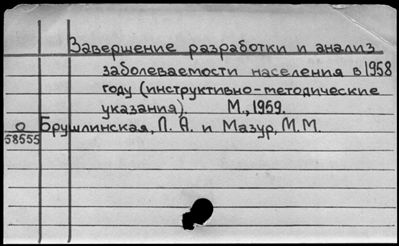 Завершение разработки и анализ
заболеваемости населения в 1958
году (инструктивно-методические
указания). М., 1959.
О
58555 Брушлинская, Л. А. и Мазур, М.М.